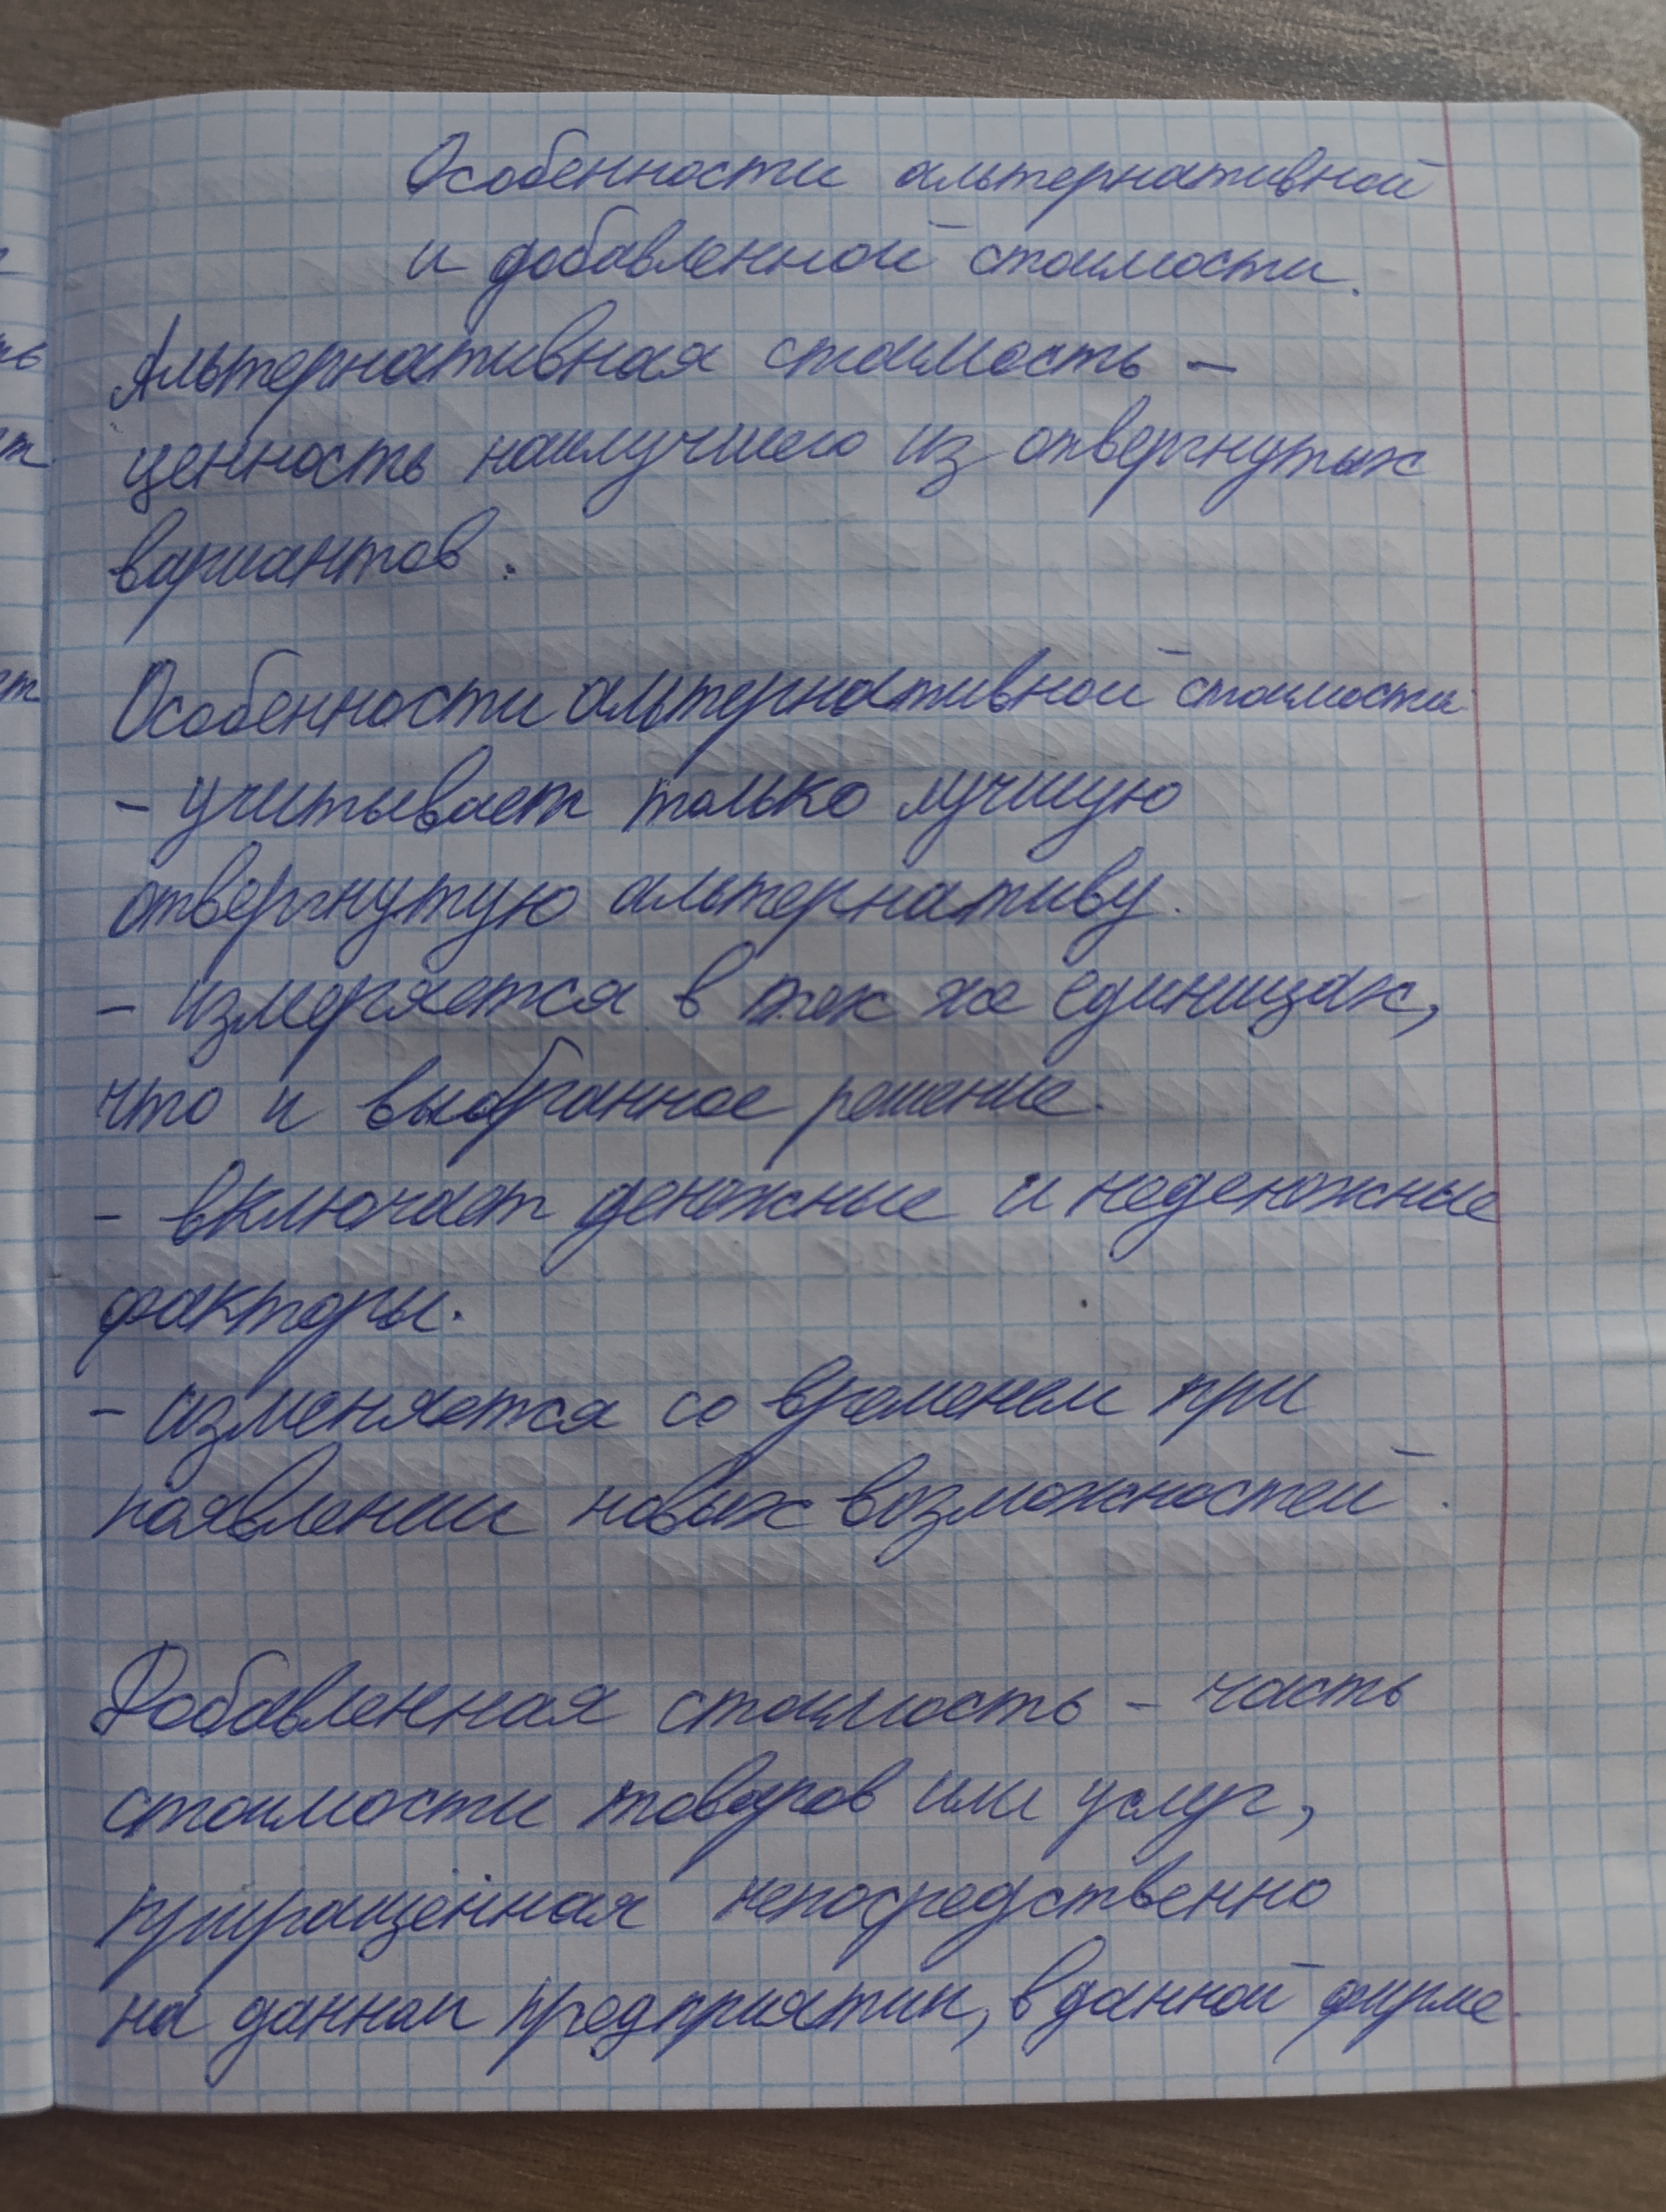 Особенности альтернативной
и добавленной стоимости.
Альтернативная стоимость –
ценность наилучшего из отвергнутых
вариантов.
Особенности альтернативной стоимости
– учитывает только лучшую
отвергнутую альтернативу.
– измеряется в тех же единицах,
что и выбранное решение.
– включает денежные и неденежные
факторы.
– изменяется со временем при
появлении новых возможностей.
Добавленная стоимость – часть
стоимости товаров или услуг,
приращённая непосредственно
на данном предприятии, в данной фирме.